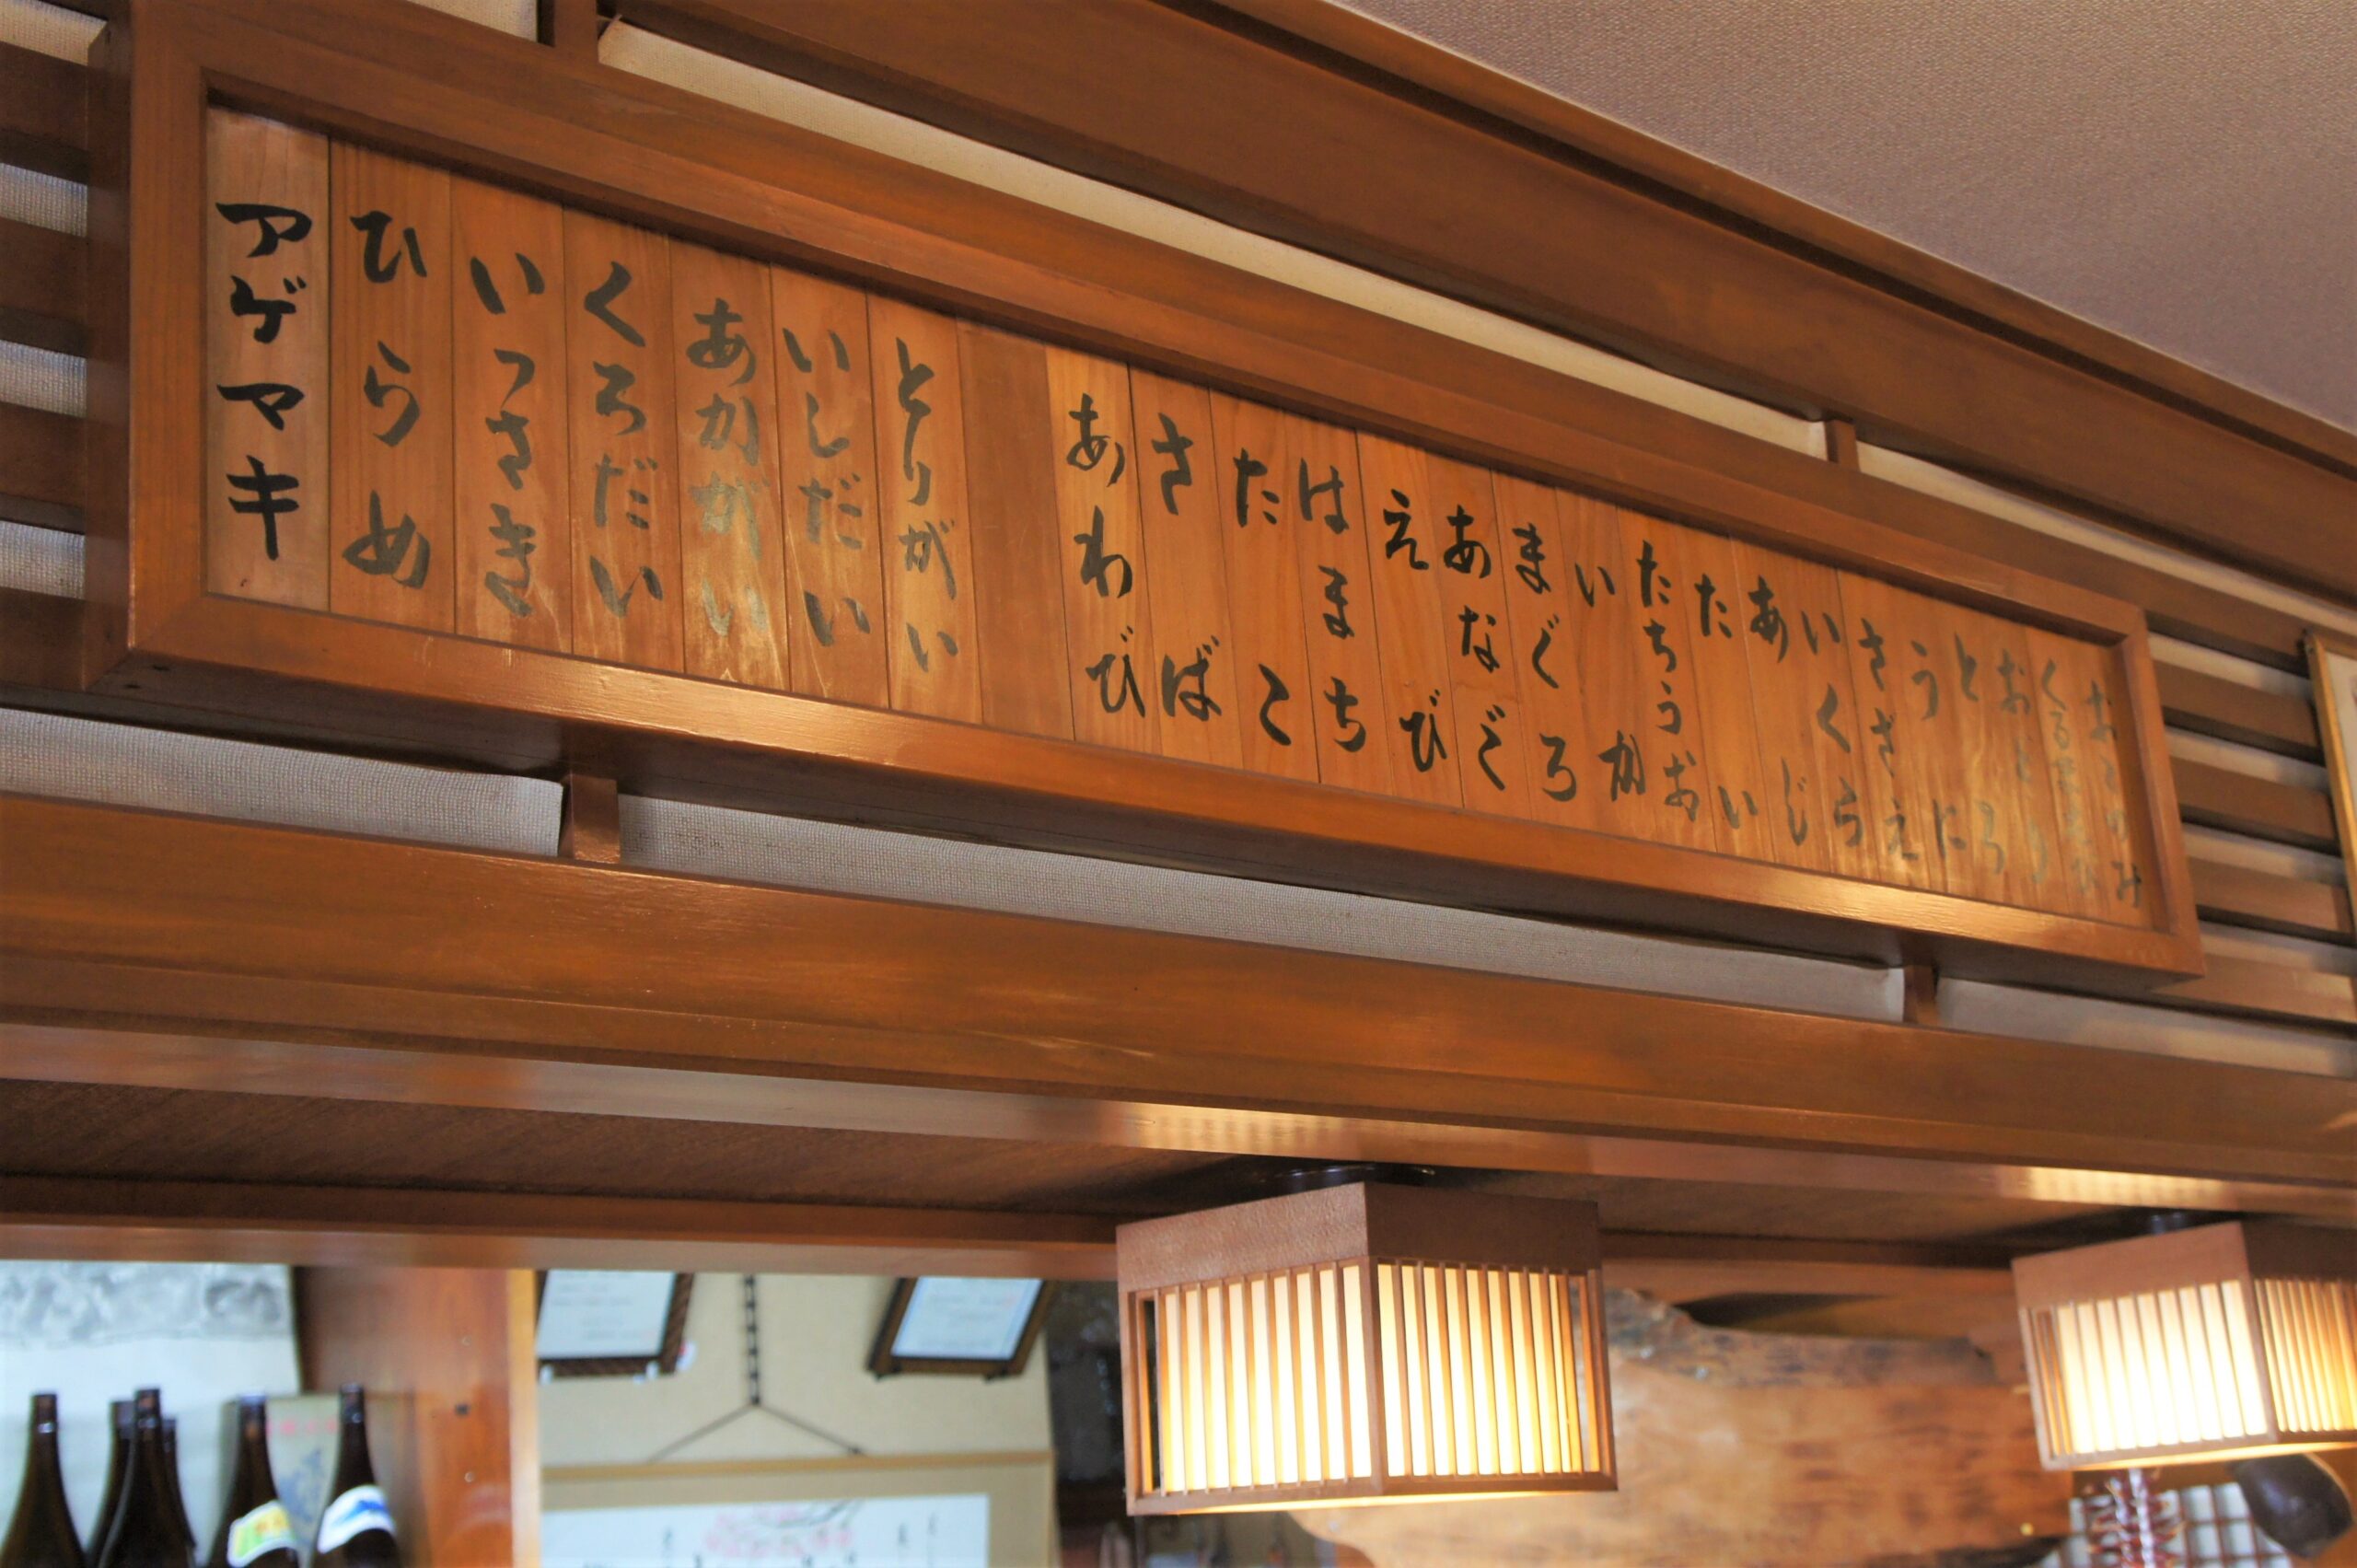 おこのみ
くるまえび
おどり
とろ
うに
さざえ
いくら
あじ
たい
たちうお
いか
まぐろ
あなご
えび
はまち
たこ
さば
あわび
とりがい
いしだい
あかがい
くろだい
いっさき
ひらめ
アゲマキ